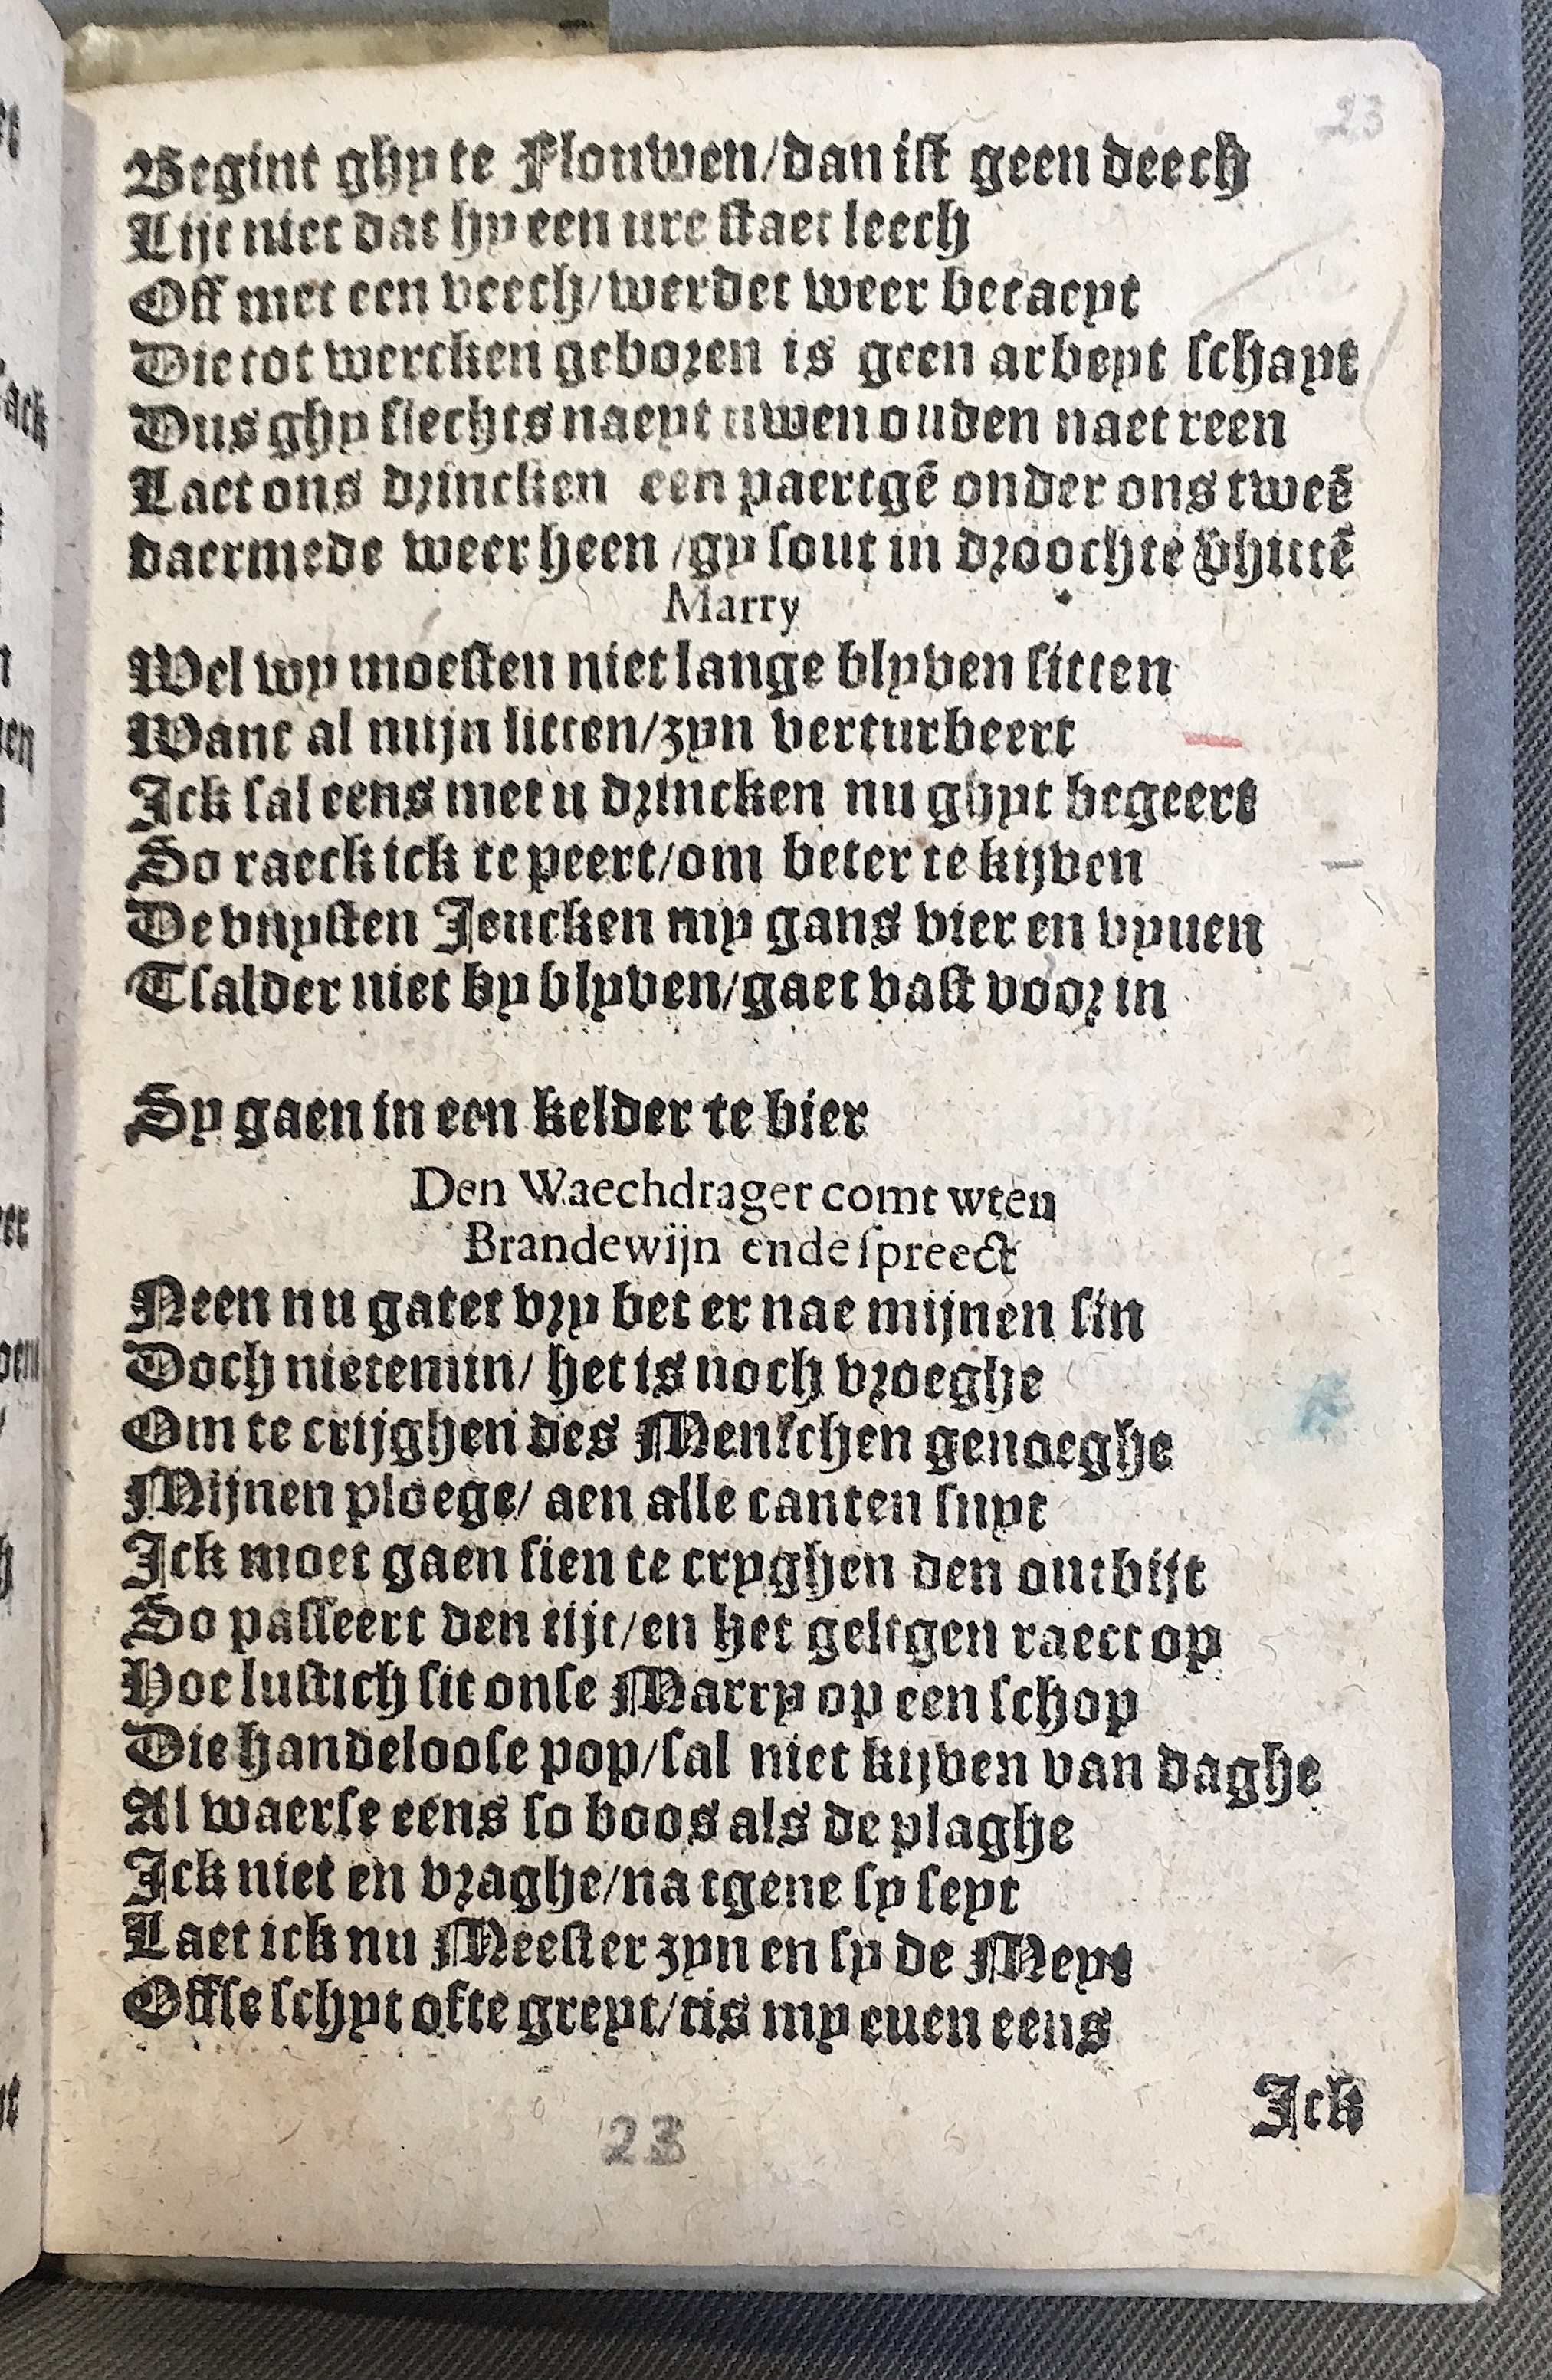 23
Begint ghy te Flouwen/dan ist geen deech
Lijt niet dat hy een ure staet leech
Off met een veech/werdet weer betaept
Die tot wercken geboren is geen arbeyt schayt
Dus ghy slechts naeyt uwen ouden naet reen
Laet ons drincken een paertgē onder ons tweē
daermede weer heen /gy sout in droochte vhittē
Marry
Wel wy moesten niet lange blyven sitten
Want al mijn litten/zyn verturbeert
Ick sal eens met u drincken nu ghyt begeert
So raeck ick te peert/om beter te kijven
De vuysten Jeucken my gans vier en vyuen
Tsalder niet by blyven/gaet vast voor in
Sy gaen in een kelder te bier
Den Waechdrager comt wten
Brandewijn ende spreect
Neen nu gatet vry bet er nae mijnen sin
Doch nietemin/ het is noch vroeghe
Om te crijghen des Menschen genoeghe
Mijnen ploege/ aen alle canten snyt
Ick moet gaen sien te cryghen den ontbijt
So passeert den tijt/en het geltgen raect op
Hoe lustich sit onse Marry op een schop
Die handeloose pop/sal niet kijven van daghe
Al waerse eens so boos als de plaghe
Ick niet en vraghe/na tgene sy seyt
Laet ick nu Meester zyn en sy de Meyt
Offse schyt ofte greyt/tis my euen eens
Ick
23